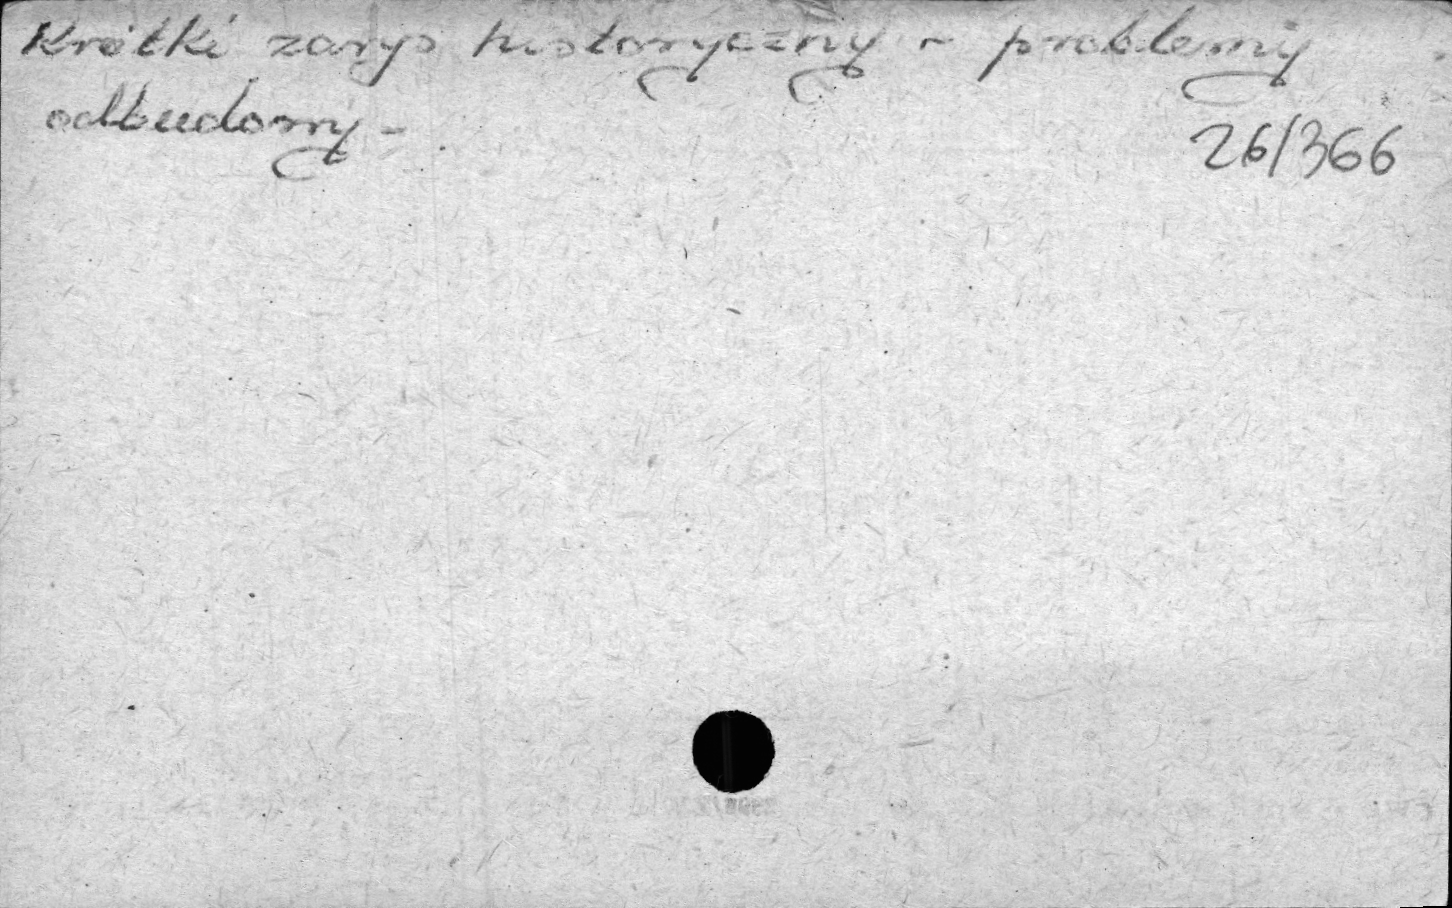 Krótki zarys historyczny - problemy
odbudowy -
26/366